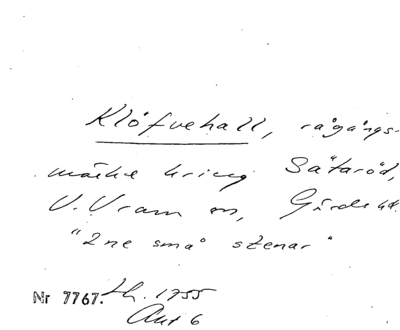 Klöfvehall, rågångs-
märke kring Sätaröd,
V. Vram sn, Gärds hd.
"2ne små stenar"
Nr 7767. th. 1755
Akt 6